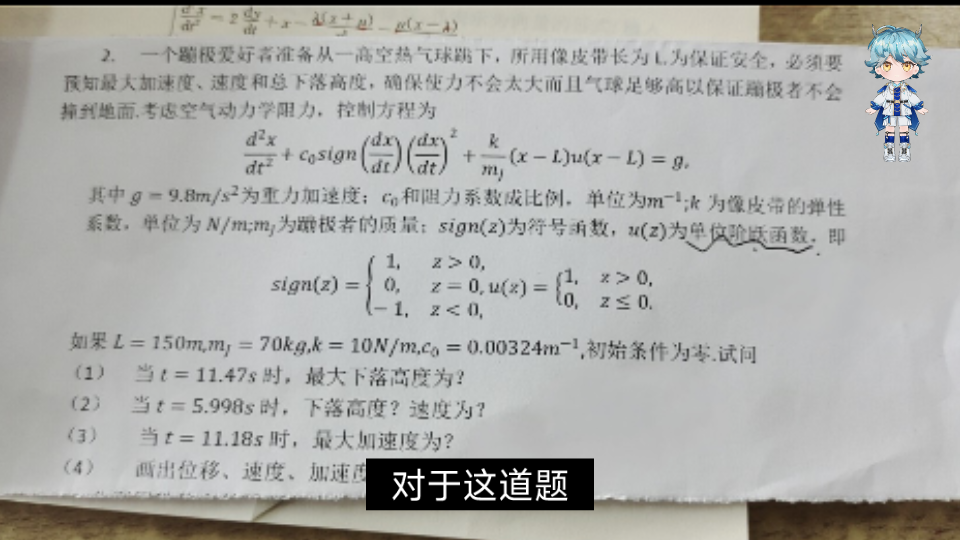 2. 一个蹦极爱好者准备从一高空热气球跳下，所用像皮带长为L.为保证安全，必须要
预知最大加速度、速度和总下落高度，确保使力不会太大而且气球足够高以保证蹦极者不会
撞到地面.考虑空气动力学阻力，控制方程为
d²x/dt² + c₀sign(dx/dt)(dx/dt)² + k/mⱼ (x − L)u(x − L) = g,
其中 g = 9.8m/s²为重力加速度；c₀和阻力系数成比例，单位为m⁻¹;k 为像皮带的弹性
系数，单位为 N/m;mⱼ为蹦极者的质量；sign(z)为符号函数，u(z)为单位阶跃函数，即
sign(z) = { 1, z > 0, 0, z = 0, − 1, z < 0, u(z) = { 1, z > 0, 0, z ≤ 0.
如果 L = 150m,mⱼ = 70kg,k = 10N/m,c₀ = 0.00324m⁻¹,初始条件为零.试问
（1） 当 t = 11.47s 时，最大下落高度为？
（2） 当 t = 5.998s 时，下落高度？速度为？
（3） 当 t = 11.18s 时，最大加速度为？
（4） 画出位移、速度、加速度
对于这道题